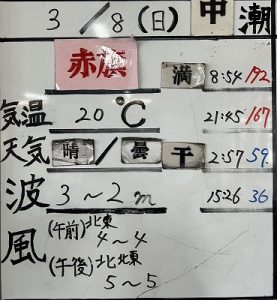 3/8(日) 中潮
赤旗 満 8:54/192
気温 20℃ 21:45 167
天気 晴/曇 干 2:57 59
波 3~2m 15:26 36
風 (午前)北東 4~4
(午後)北北東 5~5